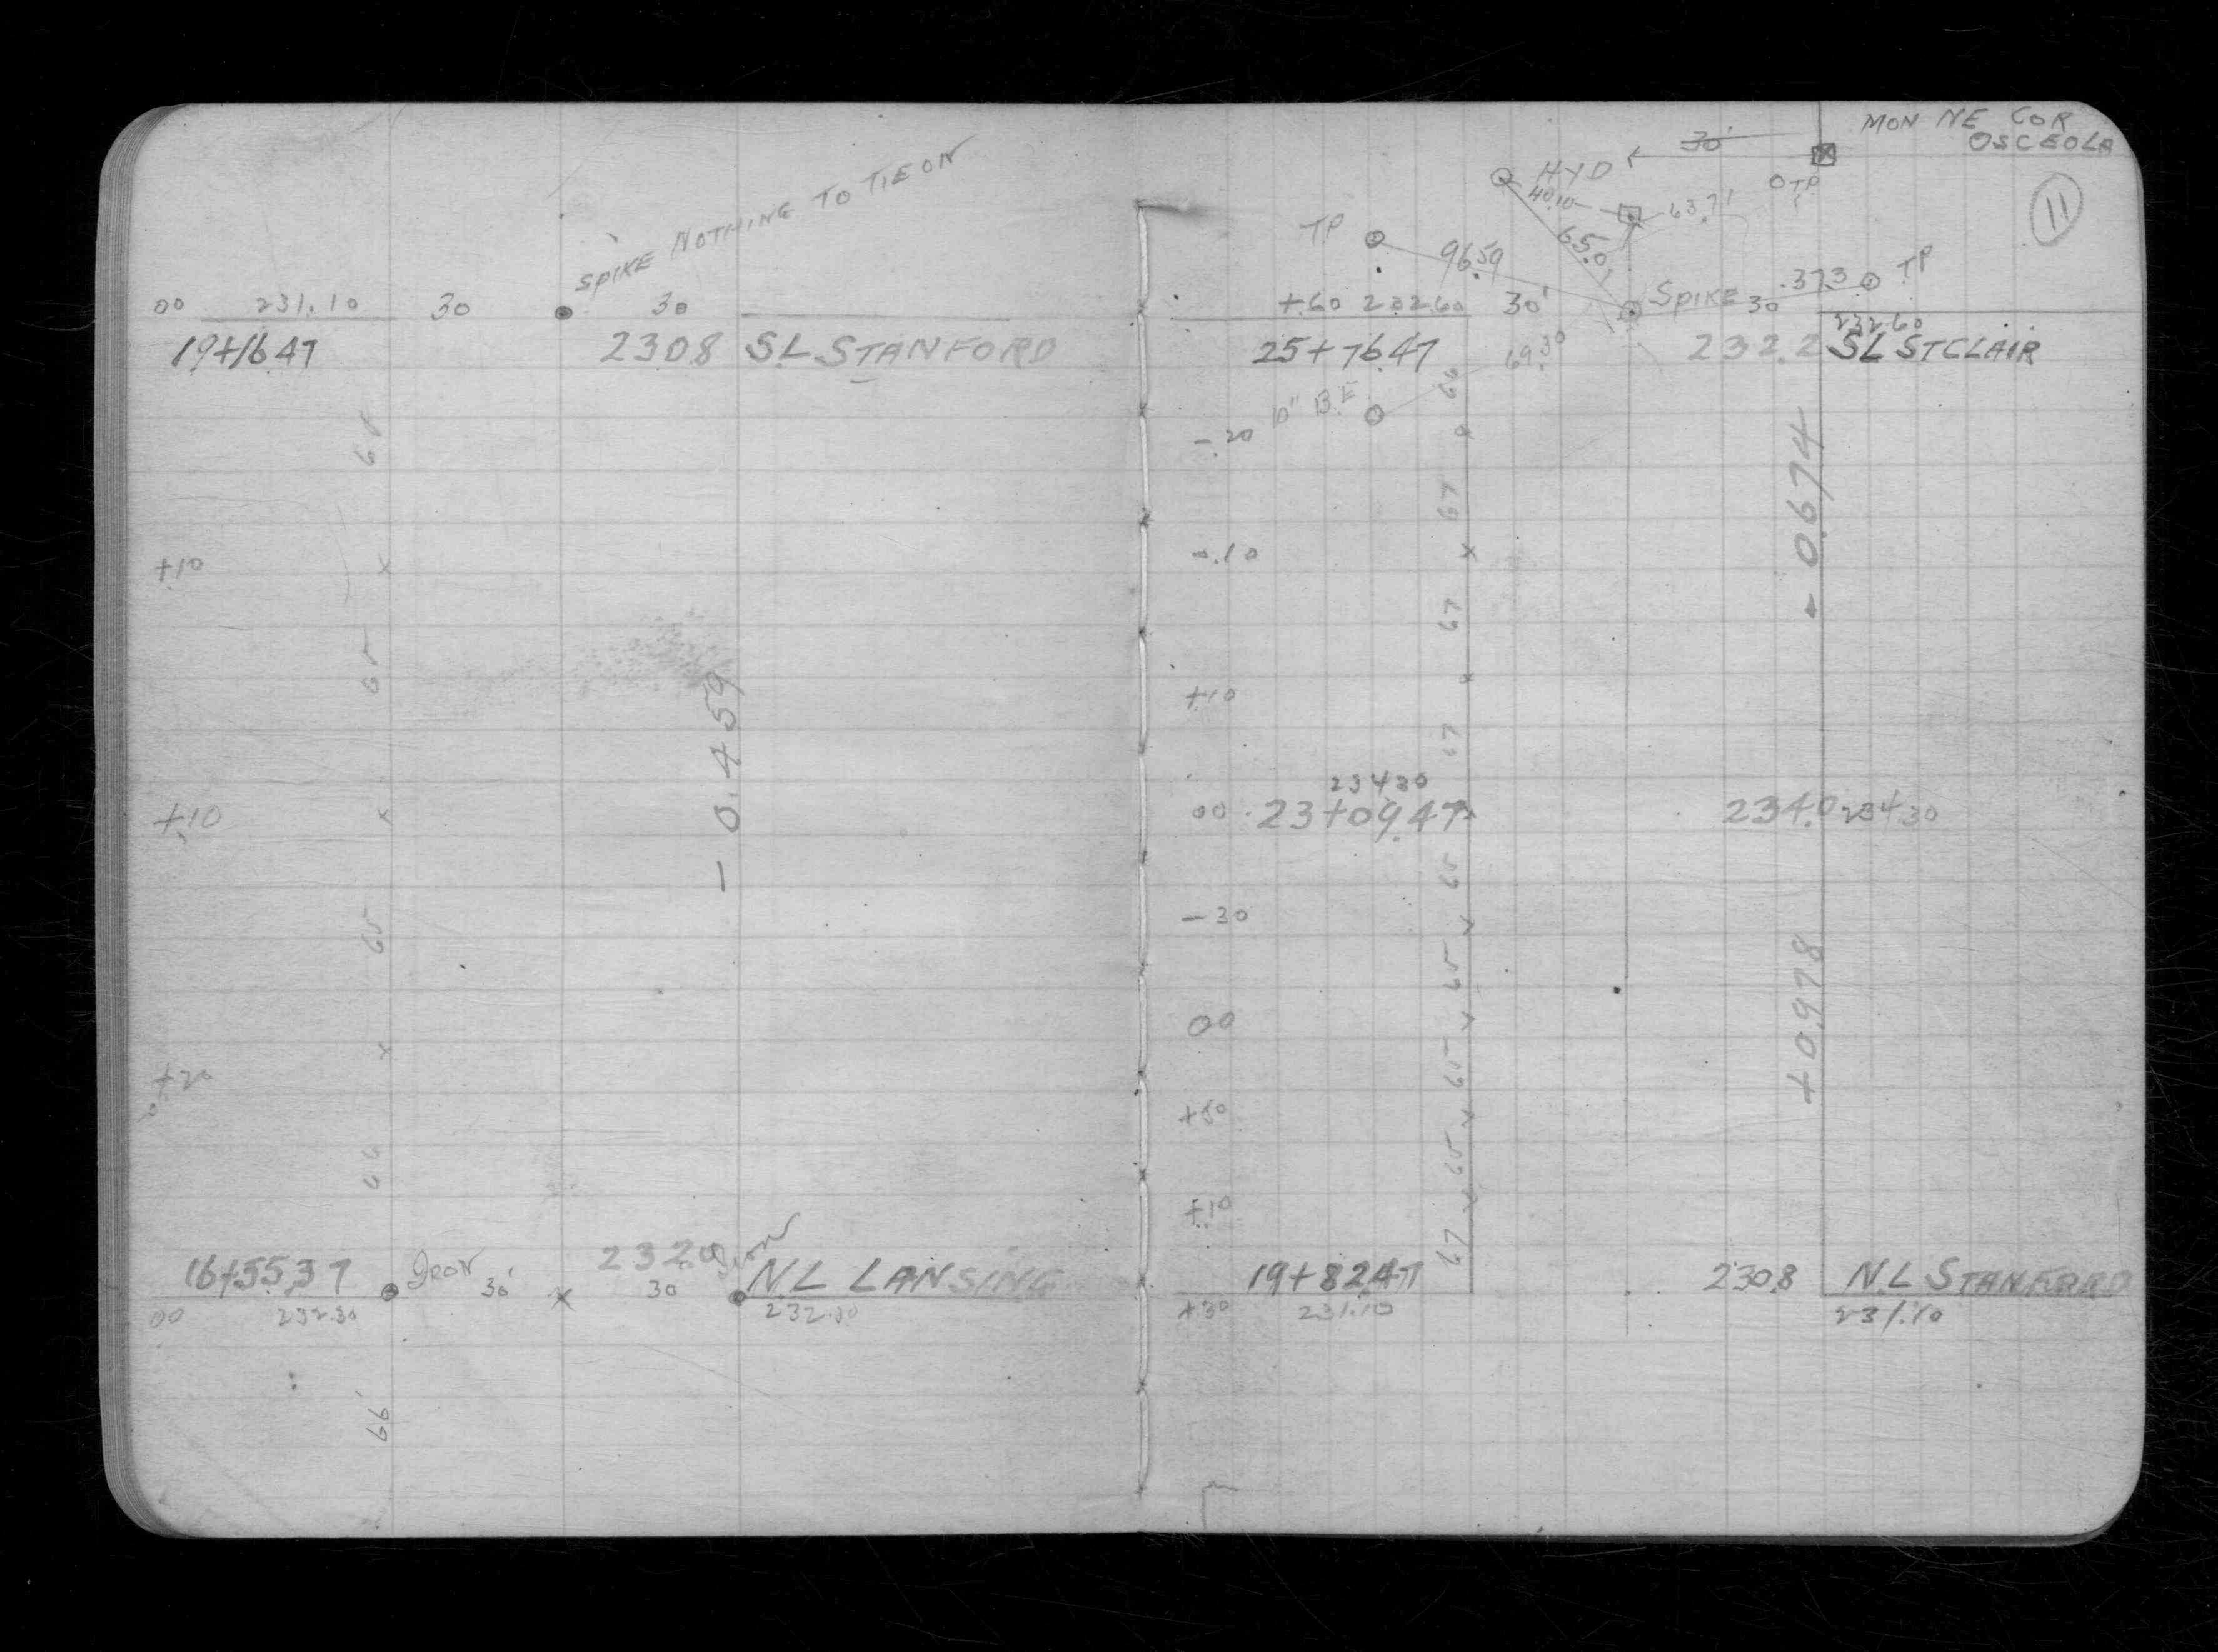 SPIKE NOTHING TO TIE ON
00 231.10 30 30
19+16.47 230.8 SL STANFORD
65
+10
65
- 0.459
+10
65
+20
66
16+55.37 IRON 30' 30 232.0 IRON NL LANSING
00 232.30 232.30
66
MON NE COR
OSCEOLA
11
30'
HYD
TP
40.10 63.71
TP 96.59 65.0
SPIKE 37.3 TP
+60 232.60 30' 30 232.60
25+76.47 69.30 232.2 SL ST CLAIR
10" B.E
66
-20
67
- 0.674
-.10
67
+10
67
234.30
00 23+09.47 234.0 234.30
65
-30
65
00
+ 0.978
65
+80
65
+10
67
19+82.47 230.8 NL STANFORD
+30 231.10 231.10